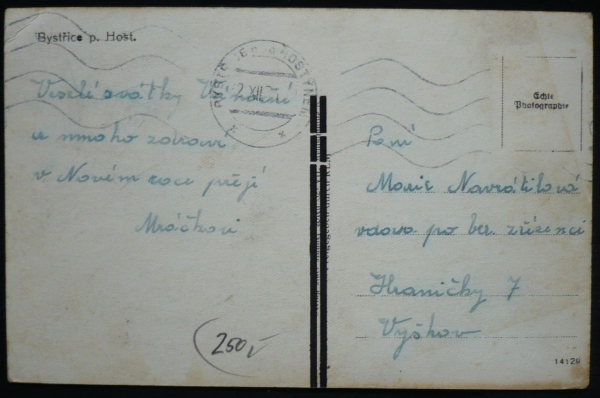 Bystřice p. Host.
Veselé svátky Vánoční
a mnoho zdraví
v Novém roce přejí
Mráčkovi
250,-
Echte
Photographie
Paní
Marie Navrátilová
vdova po ber. zřízenci
Hraničky 7
Vyškov
14129